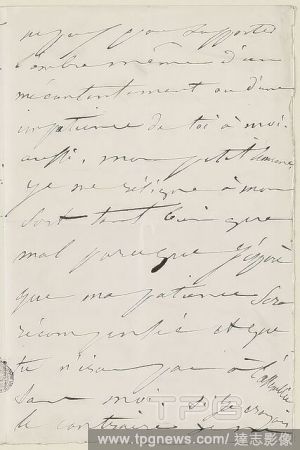 pour supporter
l'ombre même d'un
mécontentement ou d'une
impatience de toi à moi.
aussi, mon petit
je me résigne à mon
sort tant bien que
mal parce que j'espère
que ma patience sera
récompensée et que
tu n'iras pas à l'
sans moi. si je croyais
le contraire je
TPG
www.tpgnews.com/ 達志影像